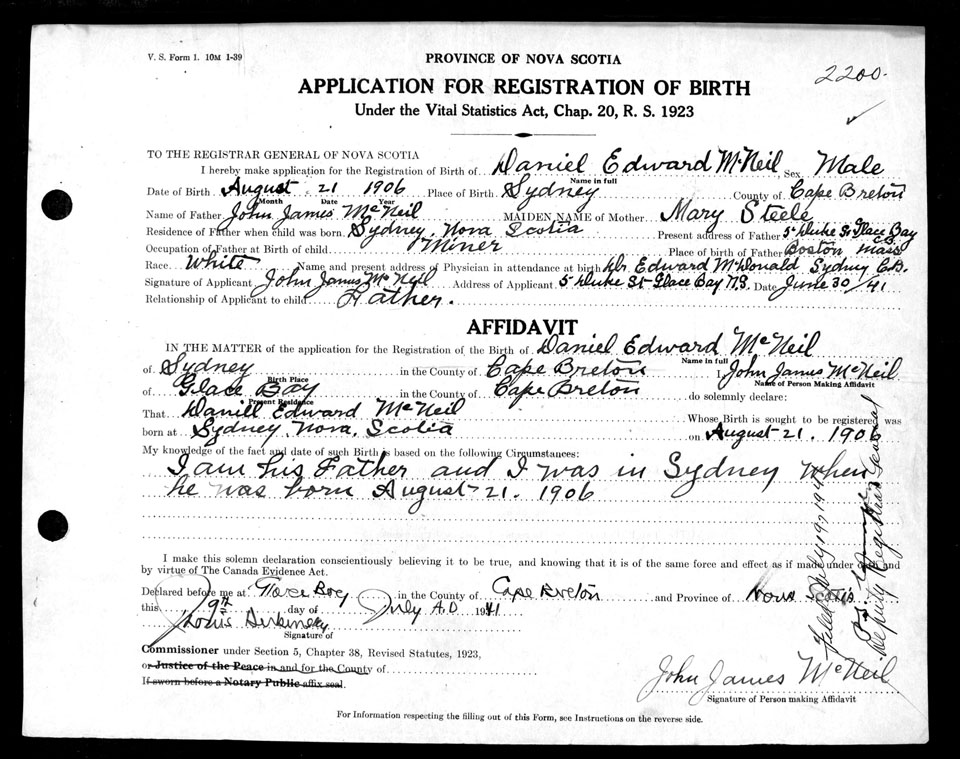 V. S. Form 1. 10M 1-39
PROVINCE OF NOVA SCOTIA
2200.
APPLICATION FOR REGISTRATION OF BIRTH
Under the Vital Statistics Act, Chap. 20, R. S. 1923
TO THE REGISTRAR GENERAL OF NOVA SCOTIA
I hereby make application for Registration of Birth of Daniel Edward McNeil Sex Male
Name in full
Date of Birth August 21 1906 Place of Birth Sydney County of Cape Breton
Month Date Year
Name of Father John James McNeil MAIDEN NAME of Mother Mary Steele
Residence of Father when child was born Sydney, Nova Scotia Present address of Father 5 Duke St Glace Bay C.B.
Occupation of Father at Birth of child Miner Place of Birth of Father Boston Mass
Race White Name and present address of Physician in attendance at birth Dr. Edward McDonald Sydney C.B.
Signature of Applicant John James McNeil Address of Applicant 5 Duke St Glace Bay N.S. Date June 30/41
Relationship of Applicant to child Father.
AFFIDAVIT
IN THE MATTER of the application for the Registration of the Birth of Daniel Edward McNeil
Name in full
of Sydney in the County of Cape Breton I, John James McNeil
Birth Place Name of Person Making Affidavit
of Glace Bay in the County of Cape Breton do solemnly declare:
Present Residence
That Daniel Edward McNeil Whose Birth is sought to be registered was
born at Sydney, Nova Scotia on August 21. 1906
My knowledge of the fact and date of such Birth is based on the following Circumstances:
I am his Father and I was in Sydney when
he was born August 21. 1906
I make this solemn declaration conscientiously believing it to be true, and knowing that it is of the same force and effect as if made under oath and
by virtue of The Canada Evidence Act.
Declared before me at Glace Bay in the County of Cape Breton and Province of Nova Scotia
this 9th day of July A.D 1941
Louis
Signature of
Commissioner under Section 5, Chapter 38, Revised Statutes, 1923,
or Justice of the Peace in and for the County of
If sworn before a Notary Public affix seal.
John James McNeil
Signature of Person making Affidavit
Filed July 19, 194
Deputy Registrar General
For Information respecting the filling out of this Form, see Instructions on the reverse side.